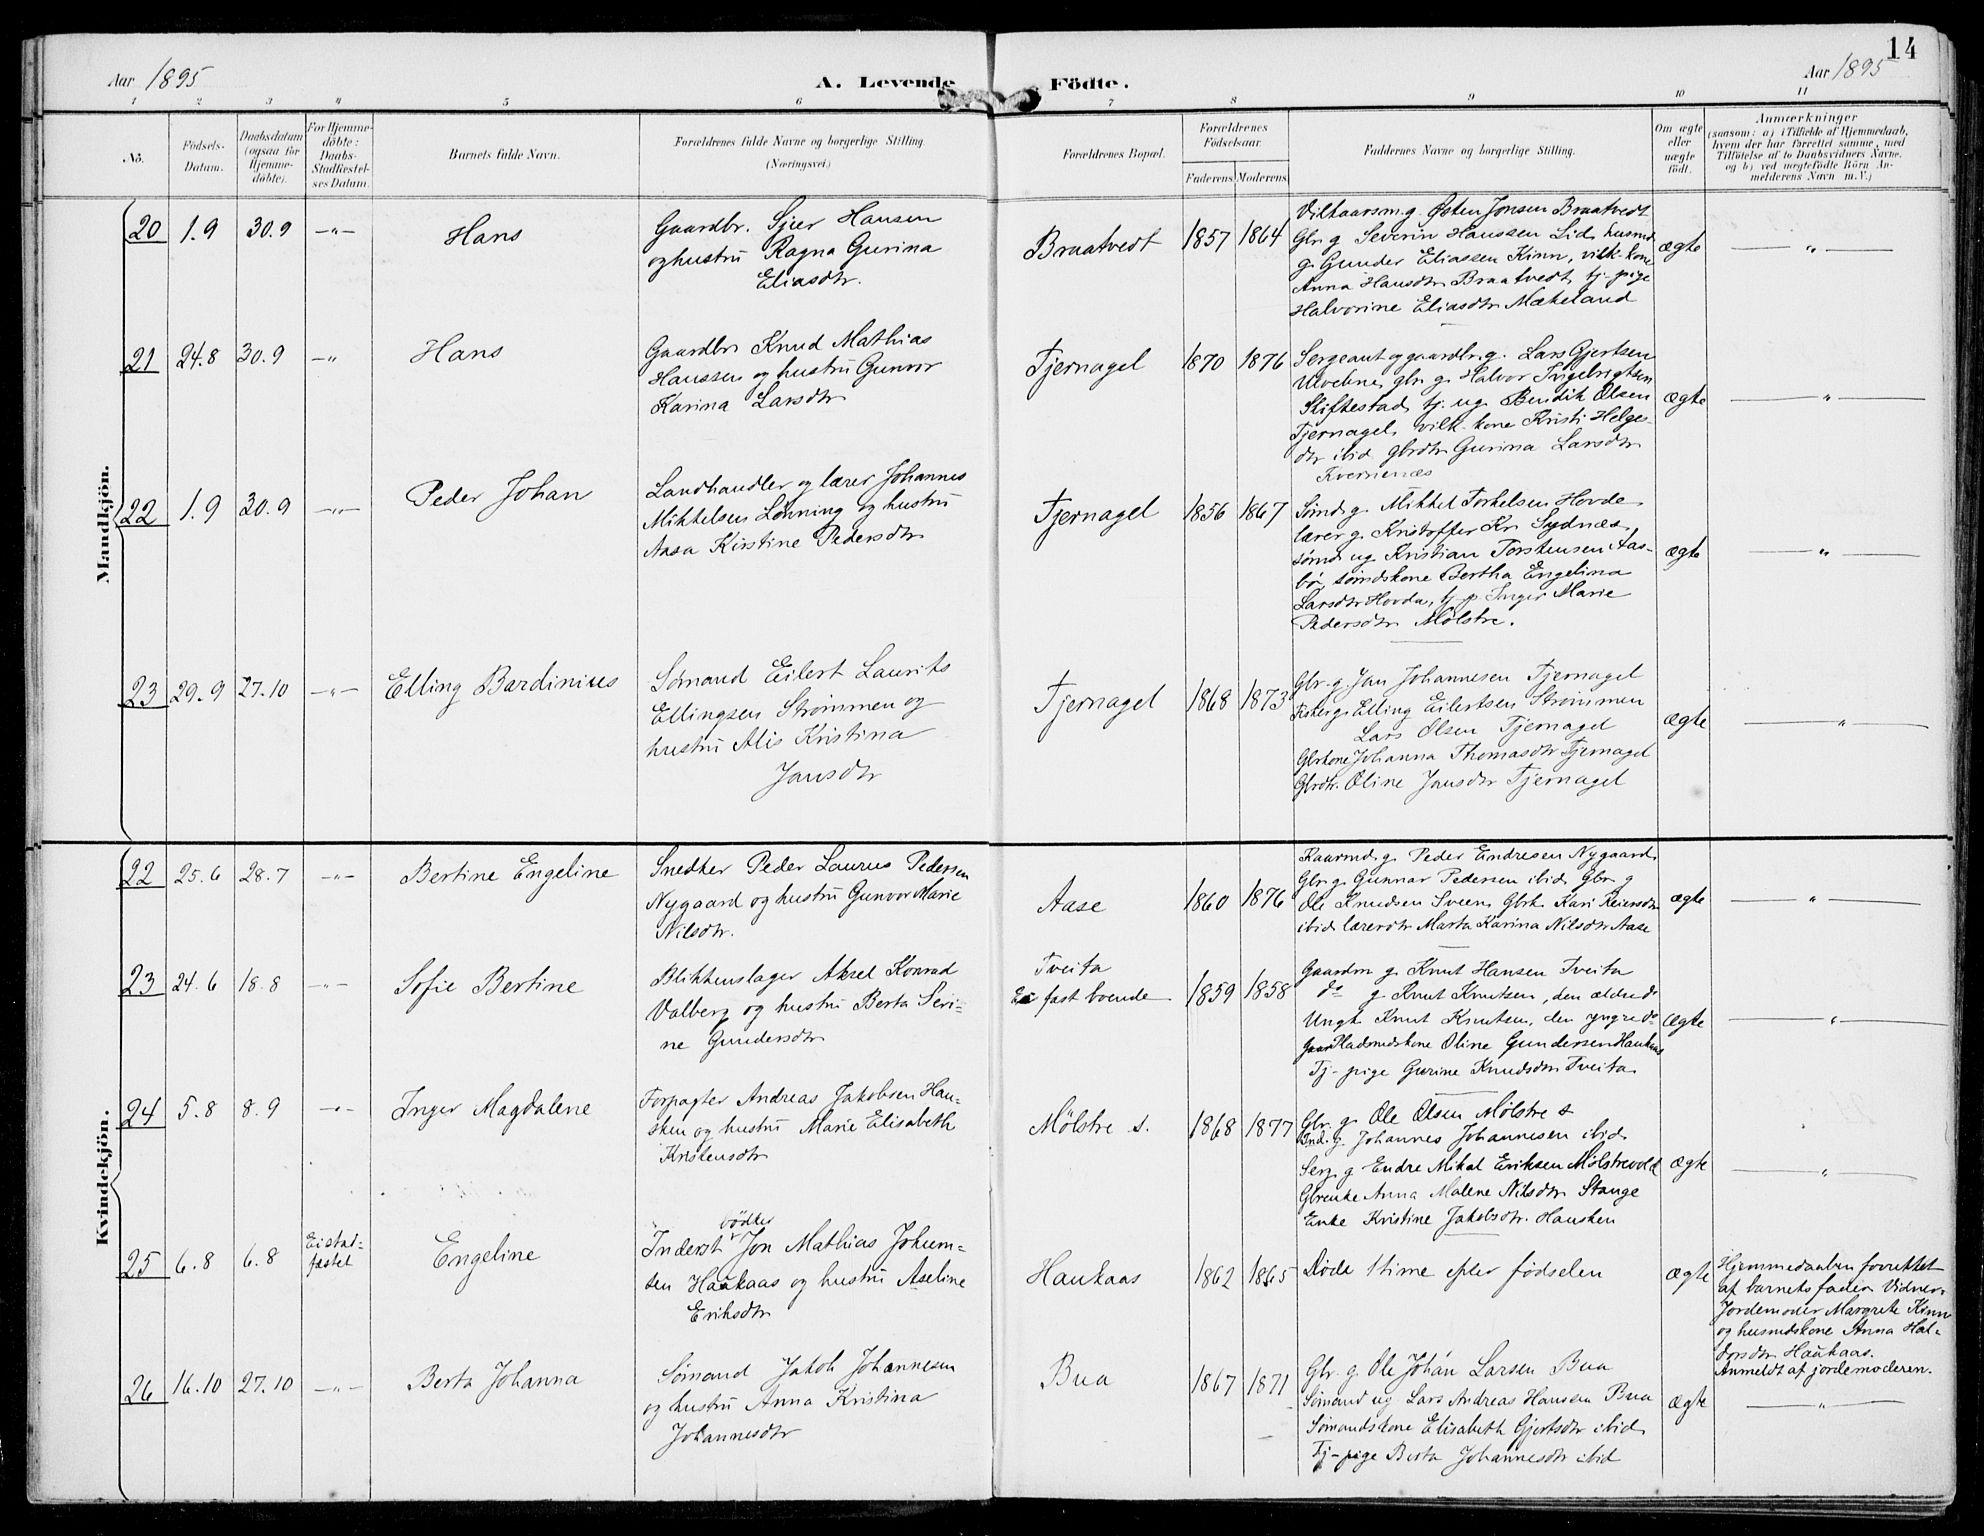 14
Aar 1895
A. Levende Födte.
Aar 1895
1 2 3 4 5 6 7 8 9 10 11
No.
Födsels-
Datum.
Daabsdatum
(ogsaa for
Hjemme-
döbte).
For Hjemme-
döbte:
Daabs-
Stadfæstel-
ses Datum.
Barnets fulde Navn.
Forældrenes fulde Navne og borgerlige Stilling.
(Næringsvei.)
Forældrenes Bopæl.
Forældrenes
Födselsaar.
Faderens. Moderens.
Faddernes Navne og borgerlige Stilling.
Om ægte
eller
uægte
födt.
Anmærkninger
(saasom: a) i Tilfælde af Hjemmedaab,
hvem der har forrettet samme, med
Tilföielse af to Daabsvidners Navne,
og b) ved uægtefödte Börn An-
melderens Navn m. V.)
Mandkjön.
20 1.9 30.9 -"-
Hans
Gaardbr. Sjur Hansen
og hustru Ragna Gurina
Eliasdtr.
Braatvedt
1857 1864
Vilkaarsm. g. Østen Jonsen Braatvedt
Gbr. g. Severin Hanssen Lid, husmd
g. Gunder Eliassen Kinn, vilk-kone
Anna Hansdtr Braatvedt, tj-pige
Halvorine Eliasdtr Mækeland
ægte
"
21 24.8 30.9 -"
Hans
Gaardbr Knud Mathias
Hanssen og hustru Gunvor
Karina Larsdtr
Tjernagel
1870 1876
Sergeant og gaardbr. g. Lars Gjertsen
Ulvekne, gbr. g. Halvor Ingebrigtsen
Skiftestad, tj. ug. Bendik Olsen
Tjernagel, vilk-kone Kristi Helges-
dtr ibid, gbrdtr Gurina Larsdtr
Kvernenæs
ægte
"
22 1.9 30.9 -"-
Peder Johan
Landhandler og lærer Johannes
Mikkelsen Lønning og hustru
Aasa Kirstine Pedersdtr
Tjernagel
1856 1867
Sømd g. Mikkel Torkelsen Hovde
lærer g. Kristoffer Kr. Sydnæs,
sømd ug. Kristian Torstensen Aas-
bø, sømdskone Bertha Engelina
Larsdtr Hovda, tj. p. Inger Marie
Pedersdtr Mølstre.
ægte
"
23 29.9 27.10 -"-
Elling Bardinius
Sømand Eilert Laurits
Ellingsen Strømmen og
hustru Alis Kristina
Jansdtr
Tjernagel
1868 1873
Gbr. g. Jan Johannesen Tjernagel
Fisker g. Elling Eilertsen Strømmen
Lars Olsen Tjernagel
Gbrkone Johanna Thomasdtr Tjernagel
Gbrdtr. Oline Jansdtr Tjernagel
ægte
"
Kvindekjön.
22 25.6 28.7 -"-
Bertine Engeline
Snedker Peder Laurus Pedersen
Nygaard og hustru Gunvor Marie
Nilsdtr.
Aase
1860 1876
Kaarmd g. Peder Endresen Nygaard,
Gbr. g. Gunnar Pedersen ibid, Gbr. g
Ole Knudsen Sveen, Gbrk Kari Reiersdtr
ibid, lærerdtr Marta Karina Nilsdtr Aase
ægte
"
23 24.6 18.8 -"-
Sofie Bertine
Blikkenslager Aksel Konrad
Valberg og hustru Berta Seri-
ne Gundersdtr
Tveita
Ei fast boende
1859 1858
Gaardm g. Knut Hansen Tveita
do g Knut Knutsen, den ældre do
Ungk Knut Knutsen, den yngre do
Pladsmdskone Oline Gundersen Haukaas
Tj-pige Gurine Knudsdtr Tveita
ægte
"
24 5.8 8.9 -"-
Inger Magdalene
Forpagter Andreas Jakobsen Hau-
sken og hustru Marie Elisabeth
Kristensdtr
Mølstre s.
1868 1877
Gbr. g. Ole Olsen Mølstre s
Ind. g. Johannes Johannesen ibid
Serg. g Endre Mikal Eriksen Mølstrevold
Gbrenke Anna Malene Nilsdtr Stange
Enke Kristine Jakobsdtr. Hausken
ægte
"
25 6.8 6.8
Ei stad-
fæstet
Engeline
bødker
Inderst Jon Mathias Johem-
sen Haukaas og hustru Aseline
Eriksdtr
Haukaas
1862 1865
Døde 1 time efter fødselen
ægte
Hjemmedaaben forrettet
af barnets fader. Vidner:
Jordemoder Margrete Kinn
og husmdskone Anna Hal-
dorsdtr Haukaas.
Anmeldt af jordemoderen.
26 16.10 27.10 -"-
Berta Johanna
Sømand Jakob Johannesen
og hustru Anna Kristina
Johannesdtr
Bua
1867 1871
Gbr. g. Ole Johan Larsen Bua
Sømand ug Lars Andreas Hansen Bua
Sømandskone Elisabeth Gjertsdtr ibid.
Tj-pige Berta Johannesdtr ibid
ægte
"